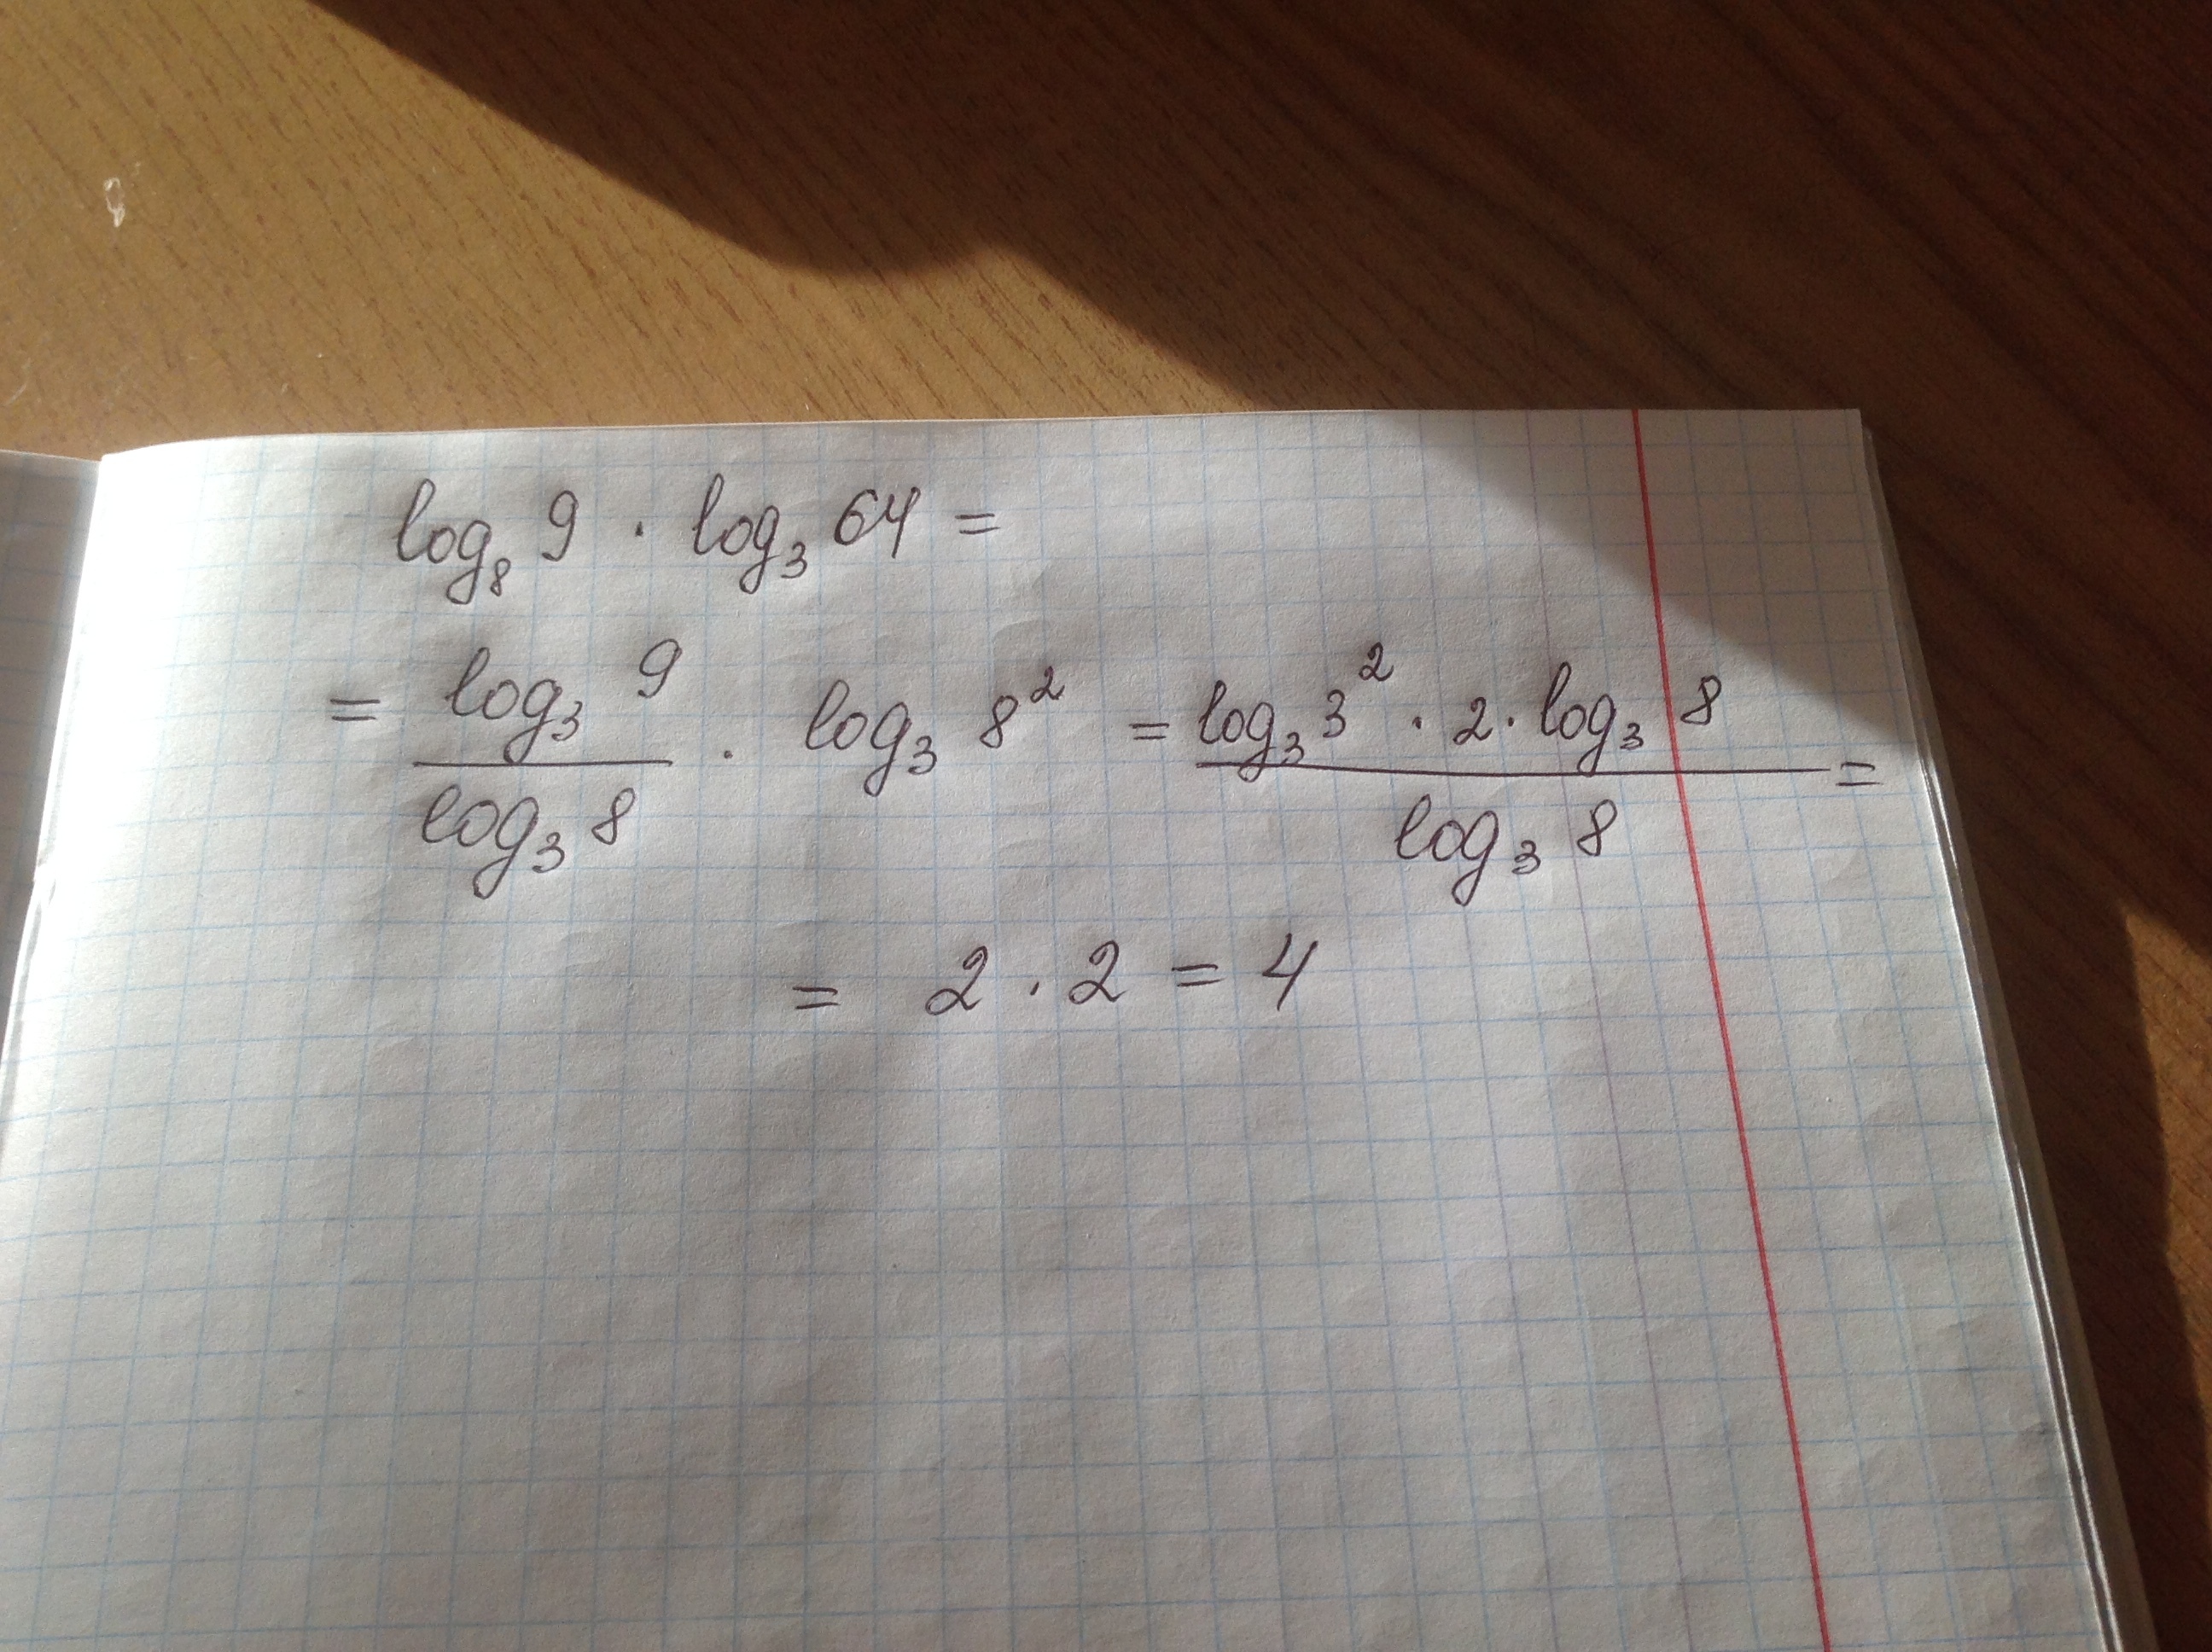 log₈ 9 · log₃ 64 =
= log₃ 9 / log₃ 8 · log₃ 8² = log₃ 3² · 2 · log₃ 8 / log₃ 8 =
= 2 · 2 = 4